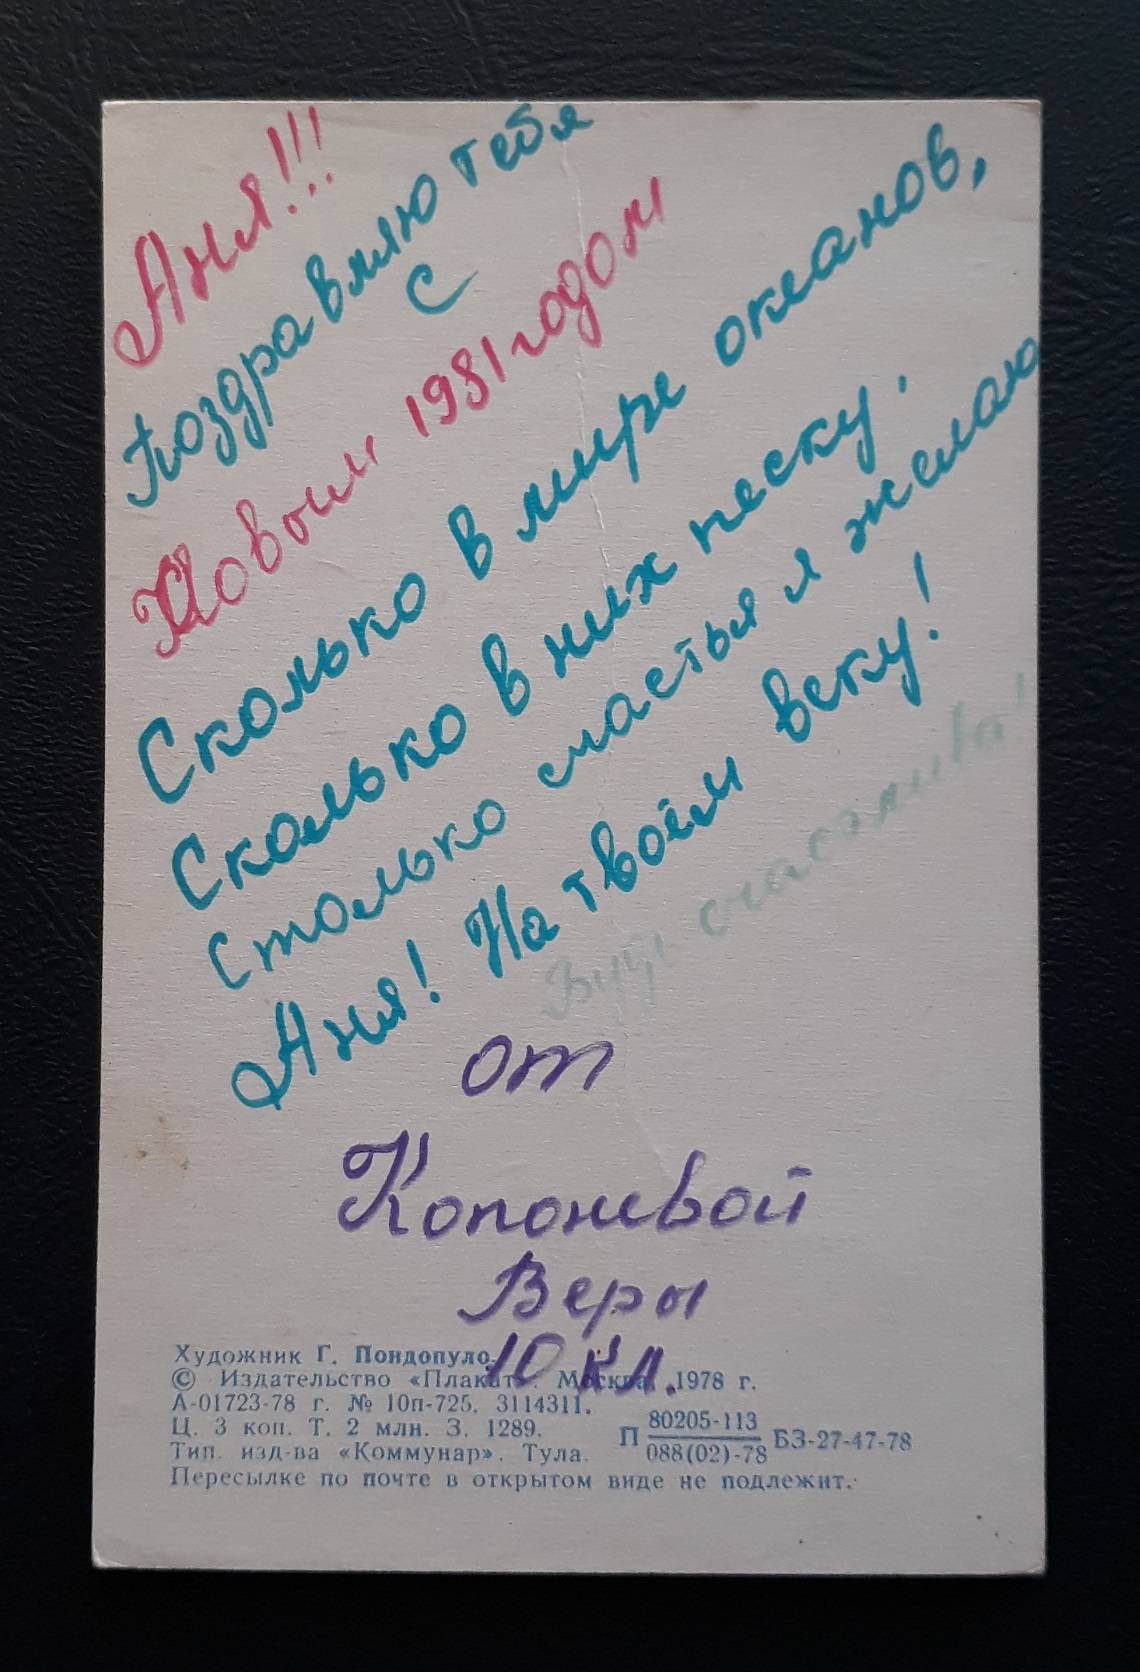 Аня!!!
Поздравляю тебя
с
Новым 1981 годом
Сколько в мире океанов,
Сколько в них песку.
Столько счастья я желаю
Аня! На твоём веку!
Будь счастлива!
от
Копоневой
Веры
10 кл.
Художник Г. Пондопуло.
© Издательство «Плакат». Москва. 1978 г.
А-01723-78 г. № 10п-725. 3114311.
Ц. 3 коп. Т. 2 млн. З. 1289.
Тип. изд-ва «Коммунар». Тула.
П 80205-113 БЗ-27-47-78
088(02)-78
Пересылке по почте в открытом виде не подлежит.